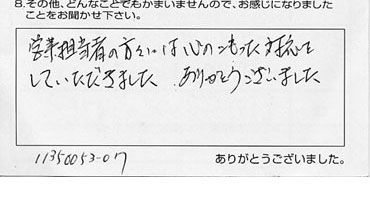 8.その他、どんなことでもかまいませんので、お感じになりました
ことをお聞かせ下さい。
営業担当者の方々には心のこもった対応を
していただきました ありがとうございました
11350053-07
ありがとうございました。